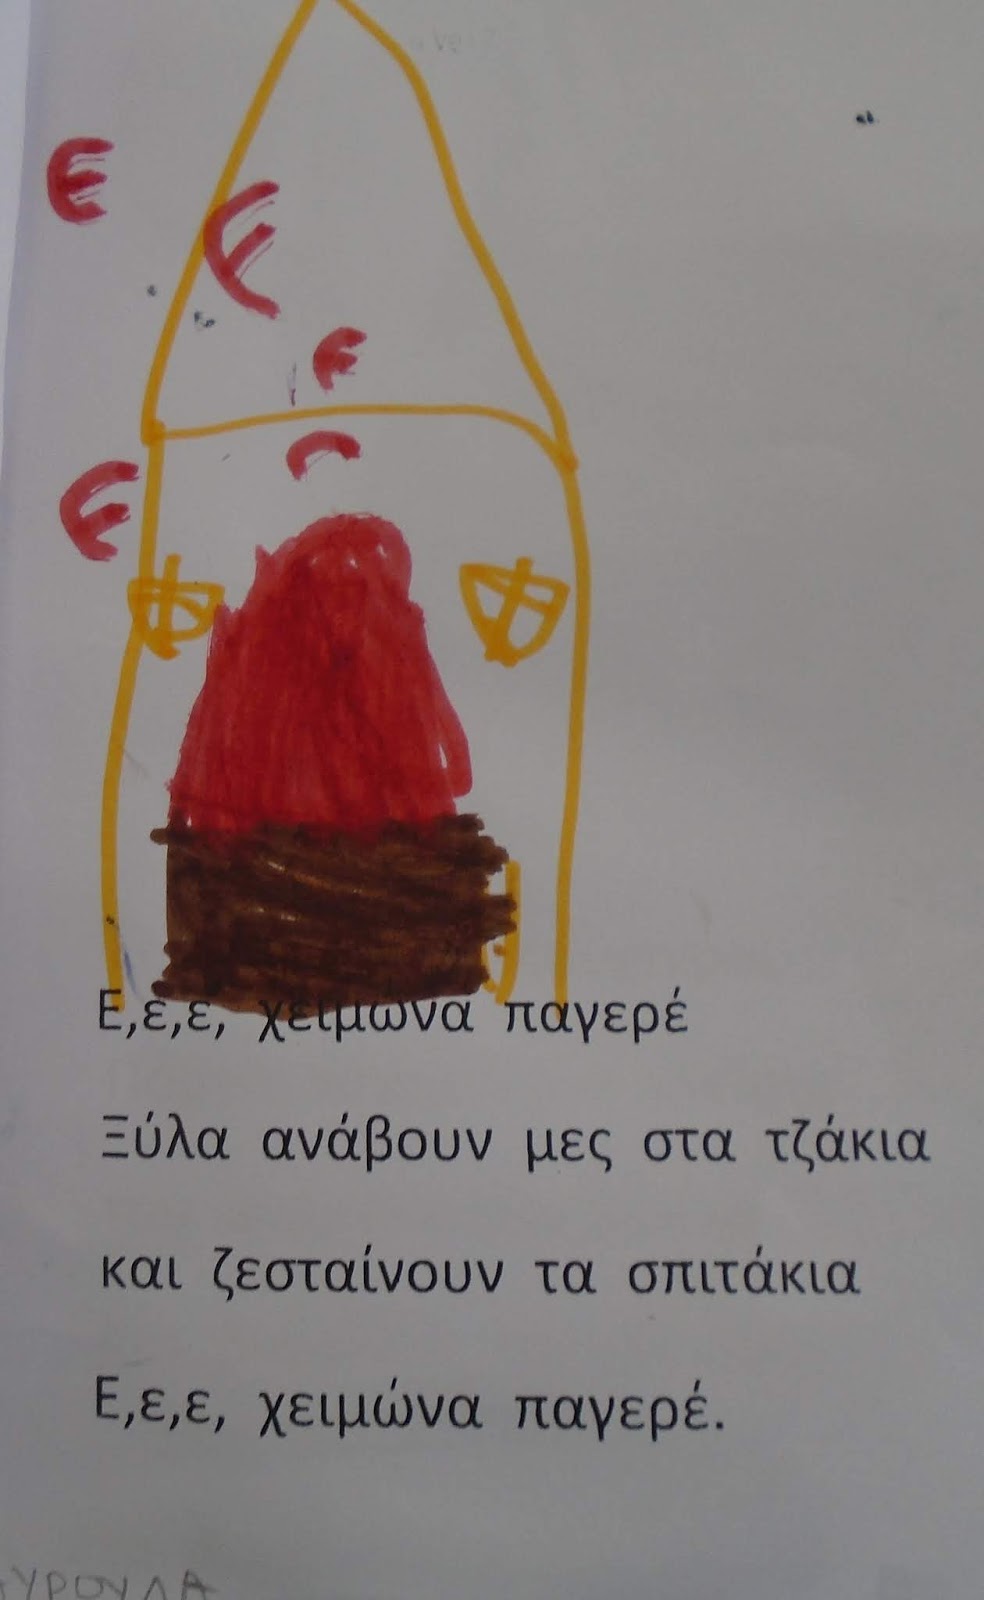 Ε
Ε
Ε
Ε
Ε,ε,ε, χειμώνα παγερέ
Ξύλα ανάβουν μες στα τζάκια
και ζεσταίνουν τα σπιτάκια
Ε,ε,ε, χειμώνα παγερέ.
ΥΡΟΥΛΑ